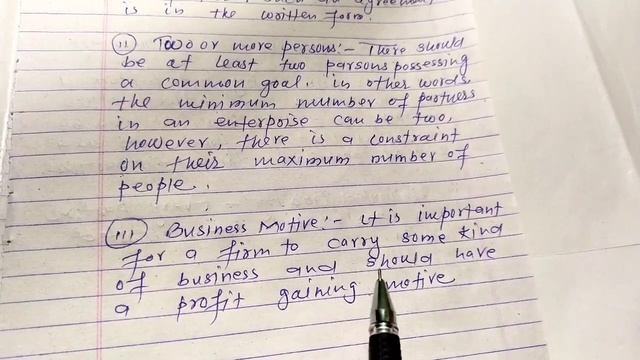 is in the written form.
(ii) Two or more persons:- There should
be at least two parsons possessing
a common goal. in other words,
the minimum number of partners
in an enterpoise can be two,
however, there is a constraint
on their maximum number of
people.
(iii) Business Motive:- it is important
for a firm to carry some kind
of business and should have
a profit gaining motive